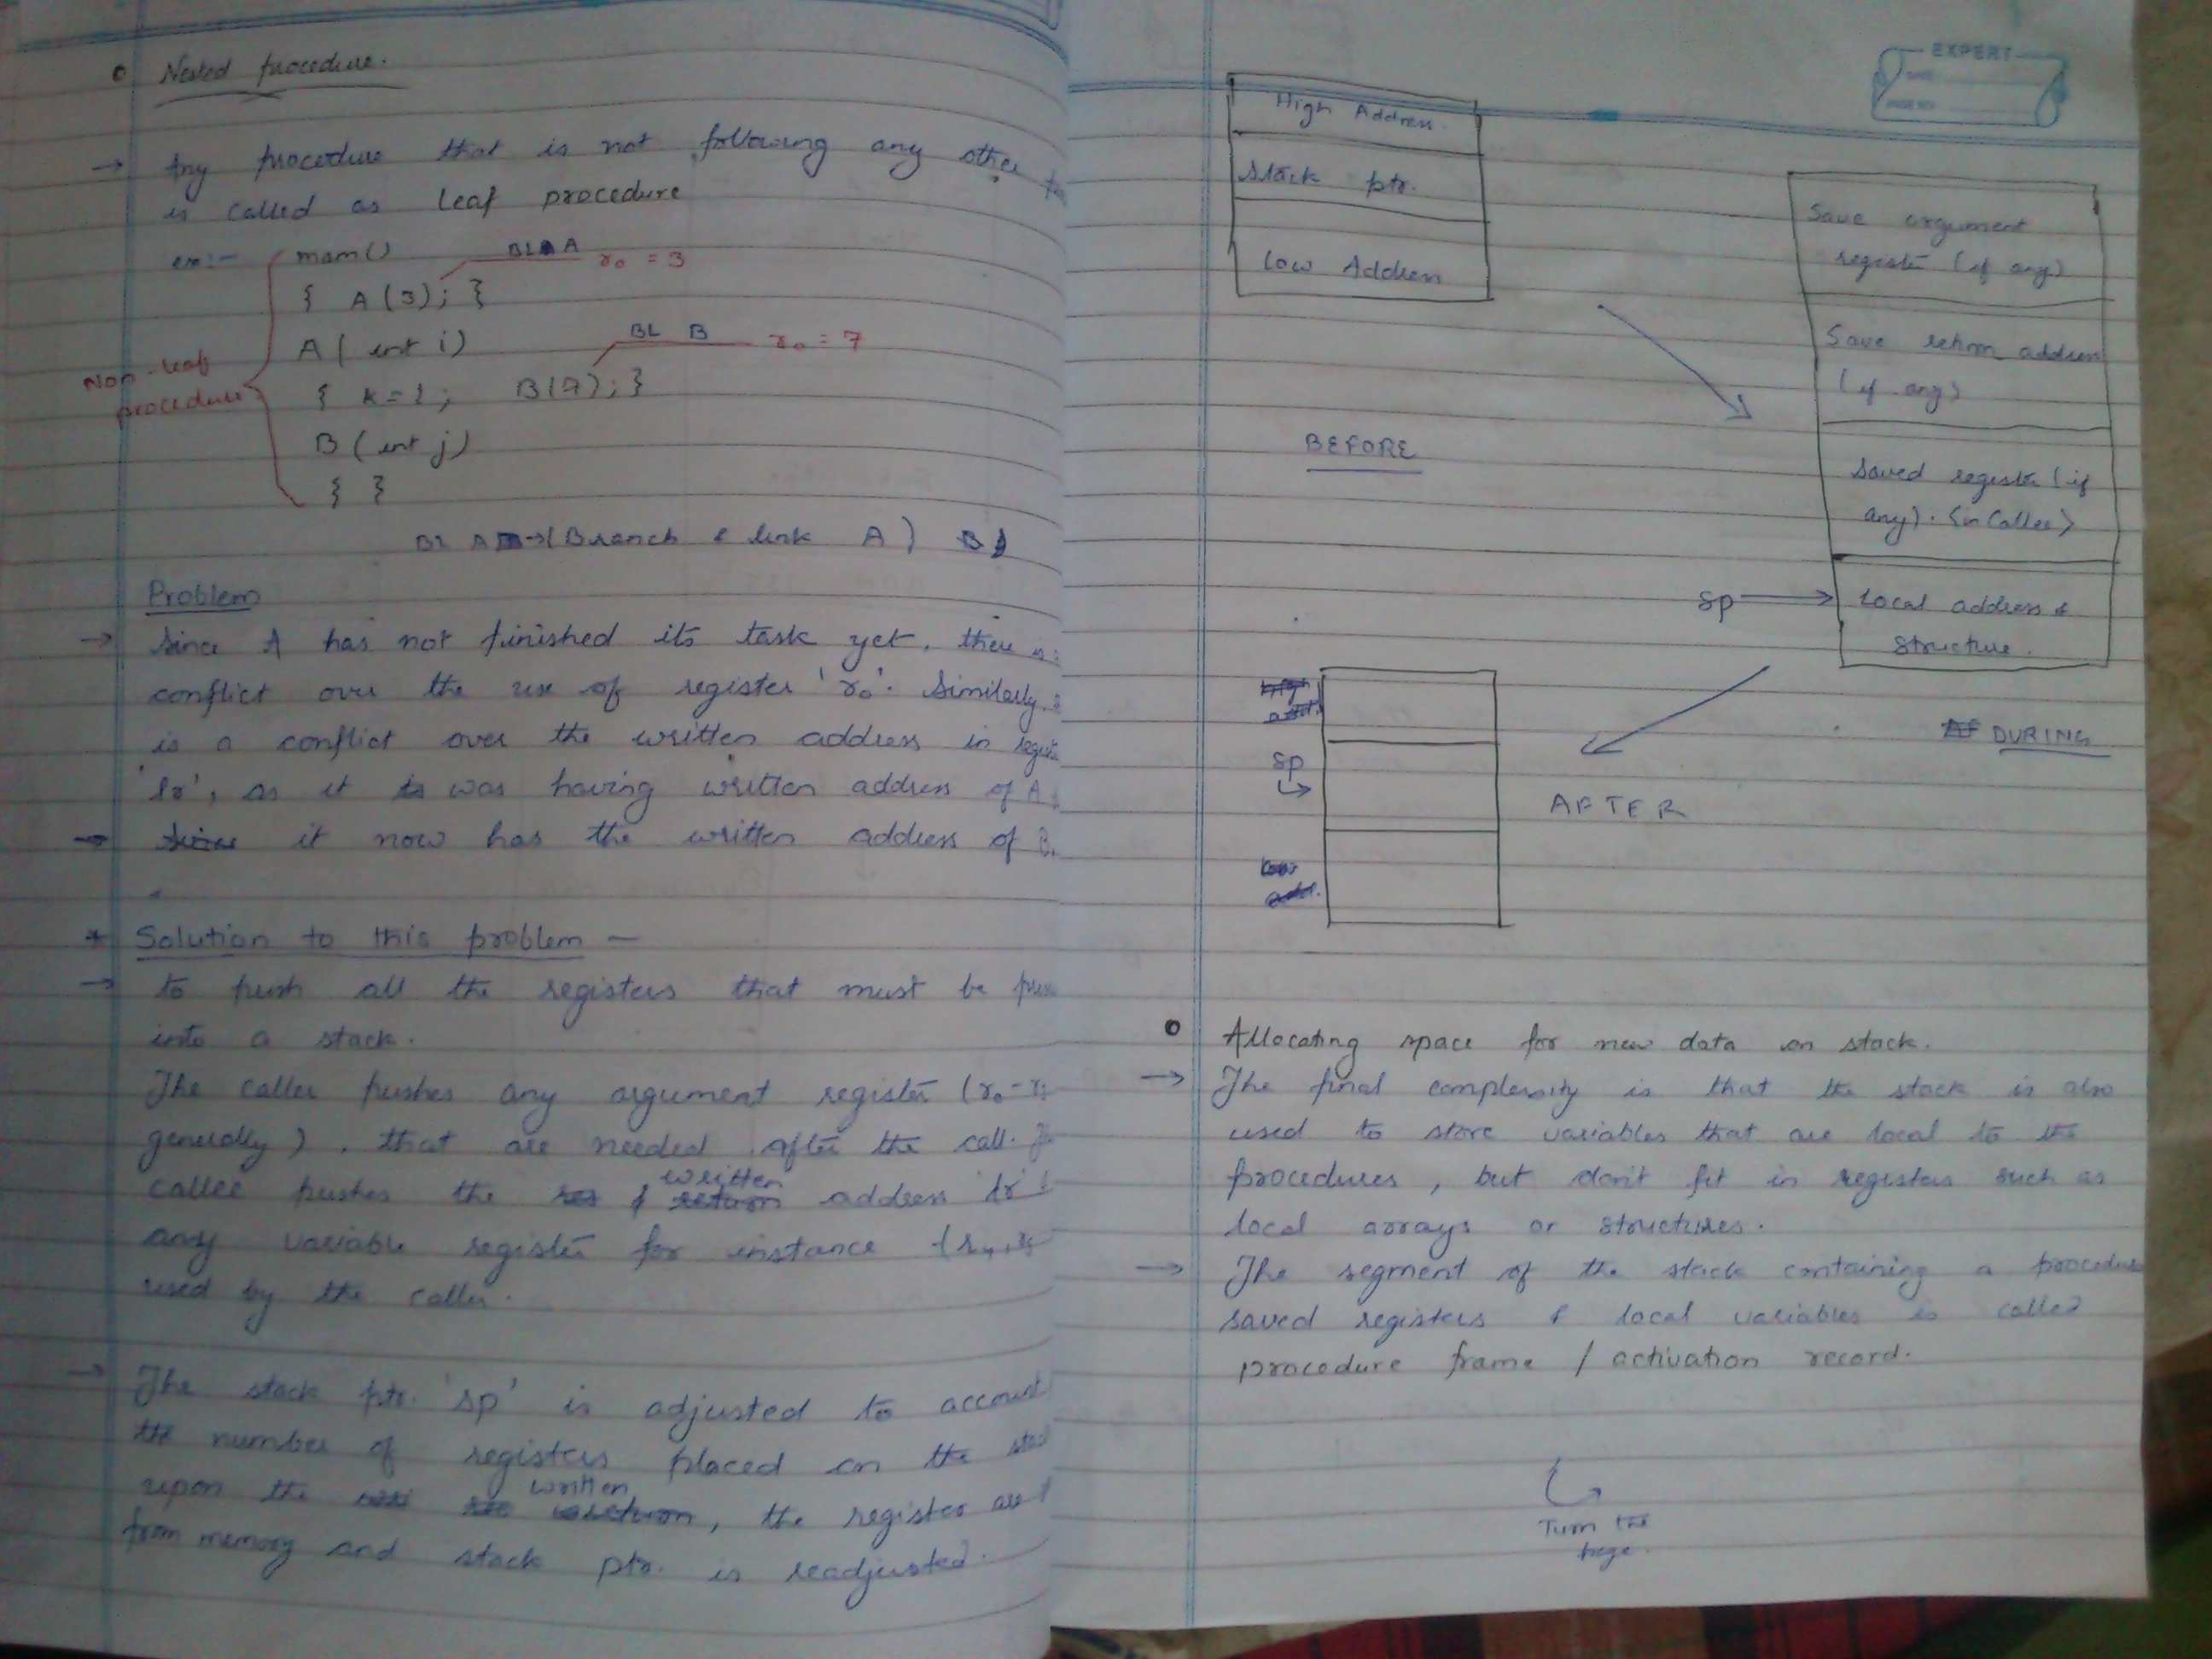 Nested procedure.
→ Any procedure that is not following any other
is called as leaf procedure
ex:- main()
BL A r0 = 3
{ A(3); }
A( int i)
BL B r0 = 7
Non-leaf
procedure
{ k=2; B(7); }
B( int j)
{ }
BL A → (Branch & link A) B
Problem
→ Since A has not finished its task yet, there is
conflict over the use of register 'r0'. Similarly,
is a conflict over the written address in
'lr', as it was having written address of A
→ it now has the written address of B.
* Solution to this problem -
→ to push all the registers that must be
into a stack.
The caller pushes any argument register (r0-
generally), that are needed after the call.
callee pushes the written address 'lr'
any variable register for instance (r4,
used by the caller.
→ The stack ptr. 'sp' is adjusted to account
the number of registers placed on the
upon the written, the register are
from memory and stack ptr. is readjusted.
EXPERT
DATE
PAGE NO.
High Address
Stack ptr.
Low Address
BEFORE
Save argument
register (if any)
Save return address
(if any)
Saved register (if
any). {in Callee}
sp → Local address &
Structure.
DURING
sp
AFTER
Allocating space for new data on stack.
→ The final complexity is that the stack is also
used to store variables that are local to the
procedures, but don't fit in registers such as
local arrays or structures.
→ The segment of the stack containing a procedure
saved registers & local variables is called
procedure frame / activation record.
Turn the
page.